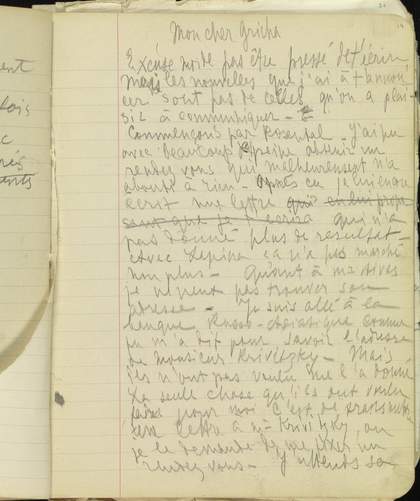 ent
ois
c
rés
ents
Mon cher Gricha
Excuse moi de pas être pressé de t'écrire
Mais les nouvelles que j'ai à t'annon
cer sont pas de celles qu'on a plai-
sir à communiquer -
Commençons par Rosental - J'ai pu
avec beaucoup peine obtenir un
rendez vous qui malheureusent n'a
abouti à rien - Après ca je lui en
ecrit une lettre qui
sent que je qui n'a
pas donné plus de resultat -
Avec Lepine ca n'a pas marché
non plus - Quant à
je n'peut pas trouver son
adresse - Je suis allé à la
banque Russo-Asiatique comme
tu m'a dit pour savoir l'adresse
de Monsieur Krivitzky - Mais
ils n'ont pas voulu me l'a donné
La seule chose qu'ils ont voulu
faire pour moi c'est de transmettre
lettre à Mr Krivitzky, ou
je le demande de me fixer un
rendez vous - J'attends sa